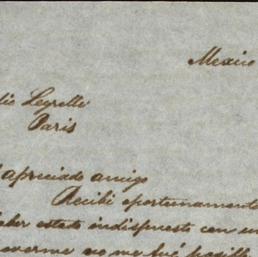 Mexico
lio Legrelle
Paris
apreciado amigo
Recibi oportunamente
haber estado indispuesto con un
no me fué posible